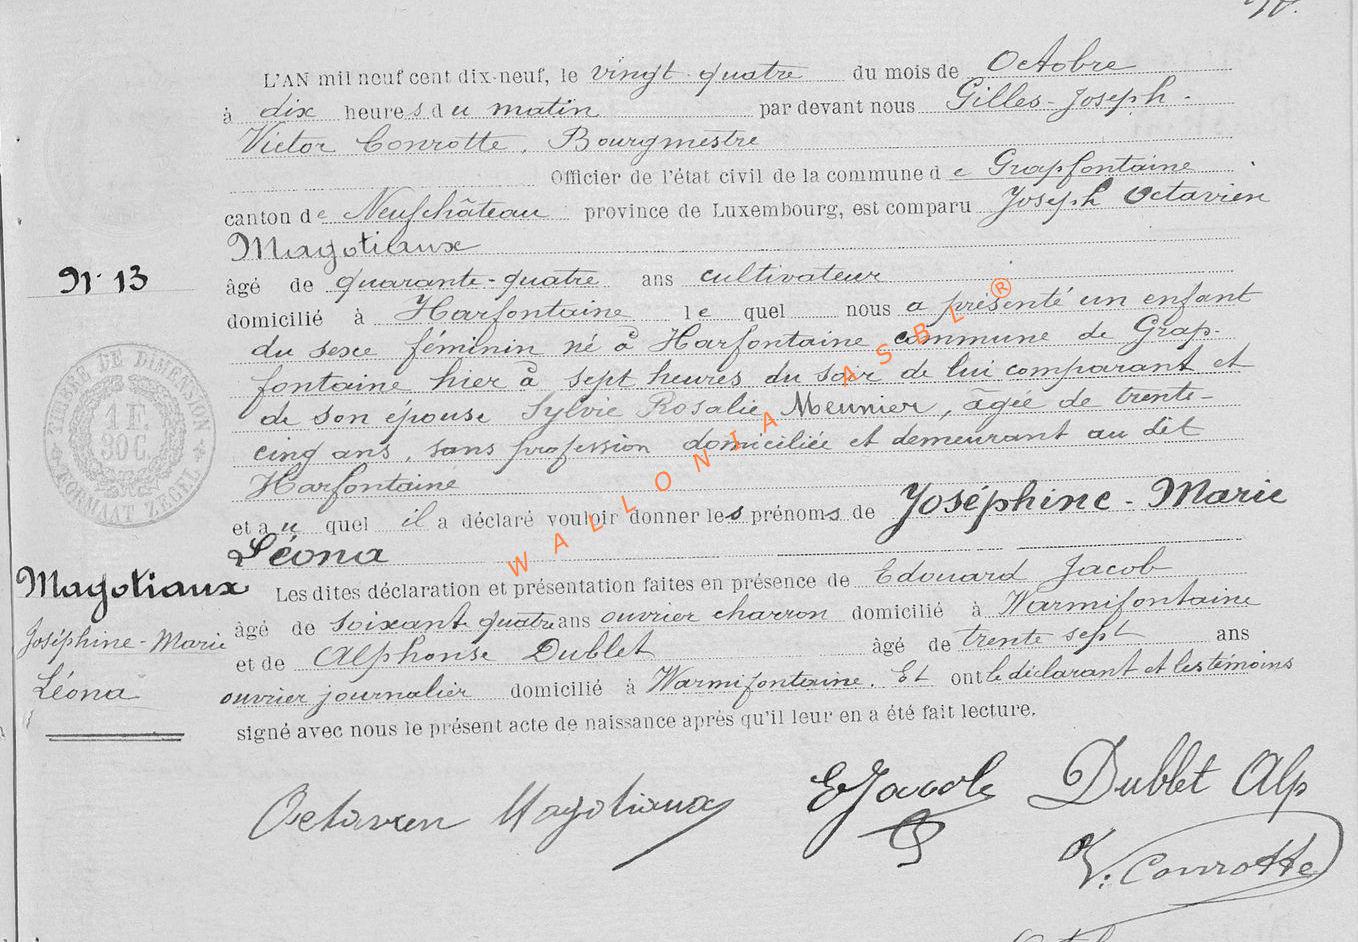 L'AN mil neuf cent dix-neuf, le vingt-quatre du mois de Octobre
à dix heures du matin par devant nous Gilles-Joseph-
Victor Conrotte, Bourgmestre
Officier de l'état civil de la commune de Grapfontaine
canton de Neufchâteau province de Luxembourg, est comparu Joseph Octavien
Magotiaux
N° 13
âgé de quarante-quatre ans cultivateur
domicilié à Harfontaine le quel nous a présenté un enfant
du sexe féminin né à Harfontaine commune de Grap-
fontaine hier à sept heures du soir de lui comparant et
de son épouse Sylvie Rosalie Meunier, âgée de trente-
cinq ans, sans profession domiciliée et demeurant au dit
Harfontaine
et au quel il a déclaré vouloir donner les prénoms de Joséphine-Marie
Léona
TIMBRE DE DIMENSION
1 F.
30 C.
FORMAAT ZEGEL
WALLONIA ASBL ®
Magotiaux
Joséphine-Marie
Léona
Les dites déclaration et présentation faites en présence de Edouard Jacob
âgé de soixante quatre ans ouvrier charron domicilié à Warmifontaine
et de Alphonse Dublet âgé de trente sept ans
ouvrier journalier domicilié à Warmifontaine. Et ont le déclarant et les témoins
signé avec nous le présent acte de naissance après qu'il leur en a été fait lecture.
Octavien Magotiaux
E Jacob
Dublet Alp
V. Conrotte